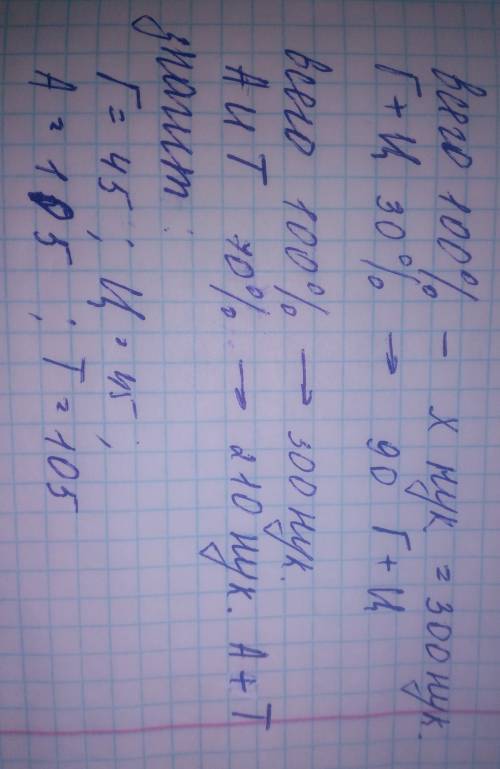 всего 100% - х нук. = 300 нук.
Г + Ц 30% → 90 Г + Ц
всего 100% → 300 нук.
А и Т 70% → 210 нук. А + Т
значит:
Г = 45; Ц = 45;
А = 105; Т = 105